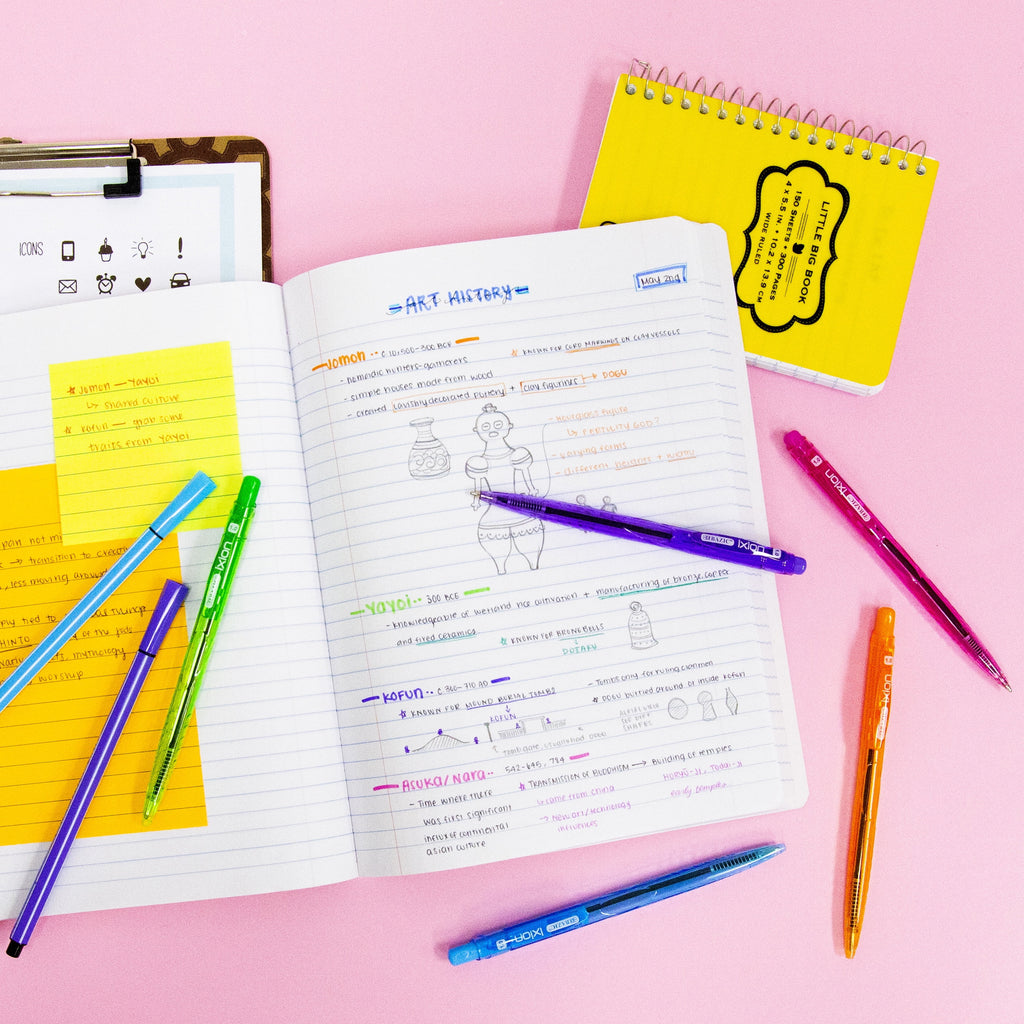 ICONS
LITTLE BIG BOOK
150 SHEETS • 300 PAGES
4 x 5.5 IN. • 10.2 x 13.9 CM
WIDE RULED
ART HISTORY
May 2nd
Jomon -- c. 10,500-300 BCE
- nomadic hunters-gatherers
- simple houses made from wood
- created lavishly decorated pottery + clay figurines → DOGU
☆ KNOWN FOR CORD MARKINGS ON CLAY VESSELS
- Hourglass figure
↳ FERTILITY GOD?
- varying forms
- different heights +
Yayoi -- 300 BCE
- knowledgeable of wetland rice cultivation + manufacturing of bronze, copper
and fired ceramics
☆ KNOWN FOR BRONZE BELLS
DOTAKU
KOFUN -- c. 300-710 AD
☆ KNOWN FOR MOUND BURIAL TOMBS
KOFUN
- Tombs only for ruling clanmen
☆ DOGU buried around or inside kofun
Asuka/Nara -- 542-645, 784
- Time where there
was first significant
influx of continental
asian culture
☆ TRANSMISSION OF BUDDHISM → Building of temples
↳ came from china
→ New art/technology
influences
HORYU-JI, Todai-ji
early temples
☆ Jomon — Yayoi
↳ shared culture
☆ Kofun — grab some
traits from Yayoi
→ transition to
, less moving around
tied to
of the gods
mythology
worship
BAZIC IXION
BAZIC IXION
BAZIC IXION
BAZIC IXION
IXION